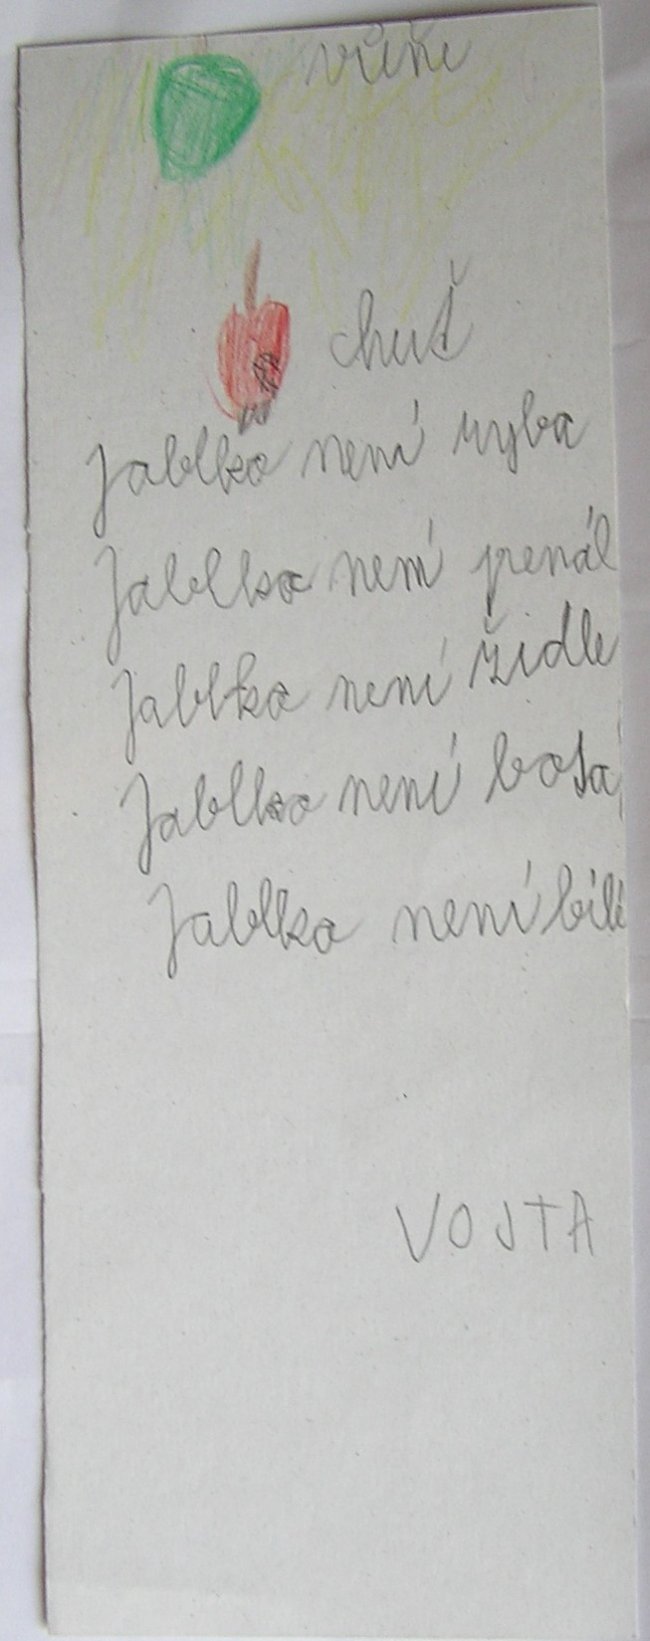 vůně
chuť
Jablko není ryba
Jablko není penál
Jablko není židle
Jablko není bota
Jablko není bílé
VOJTA